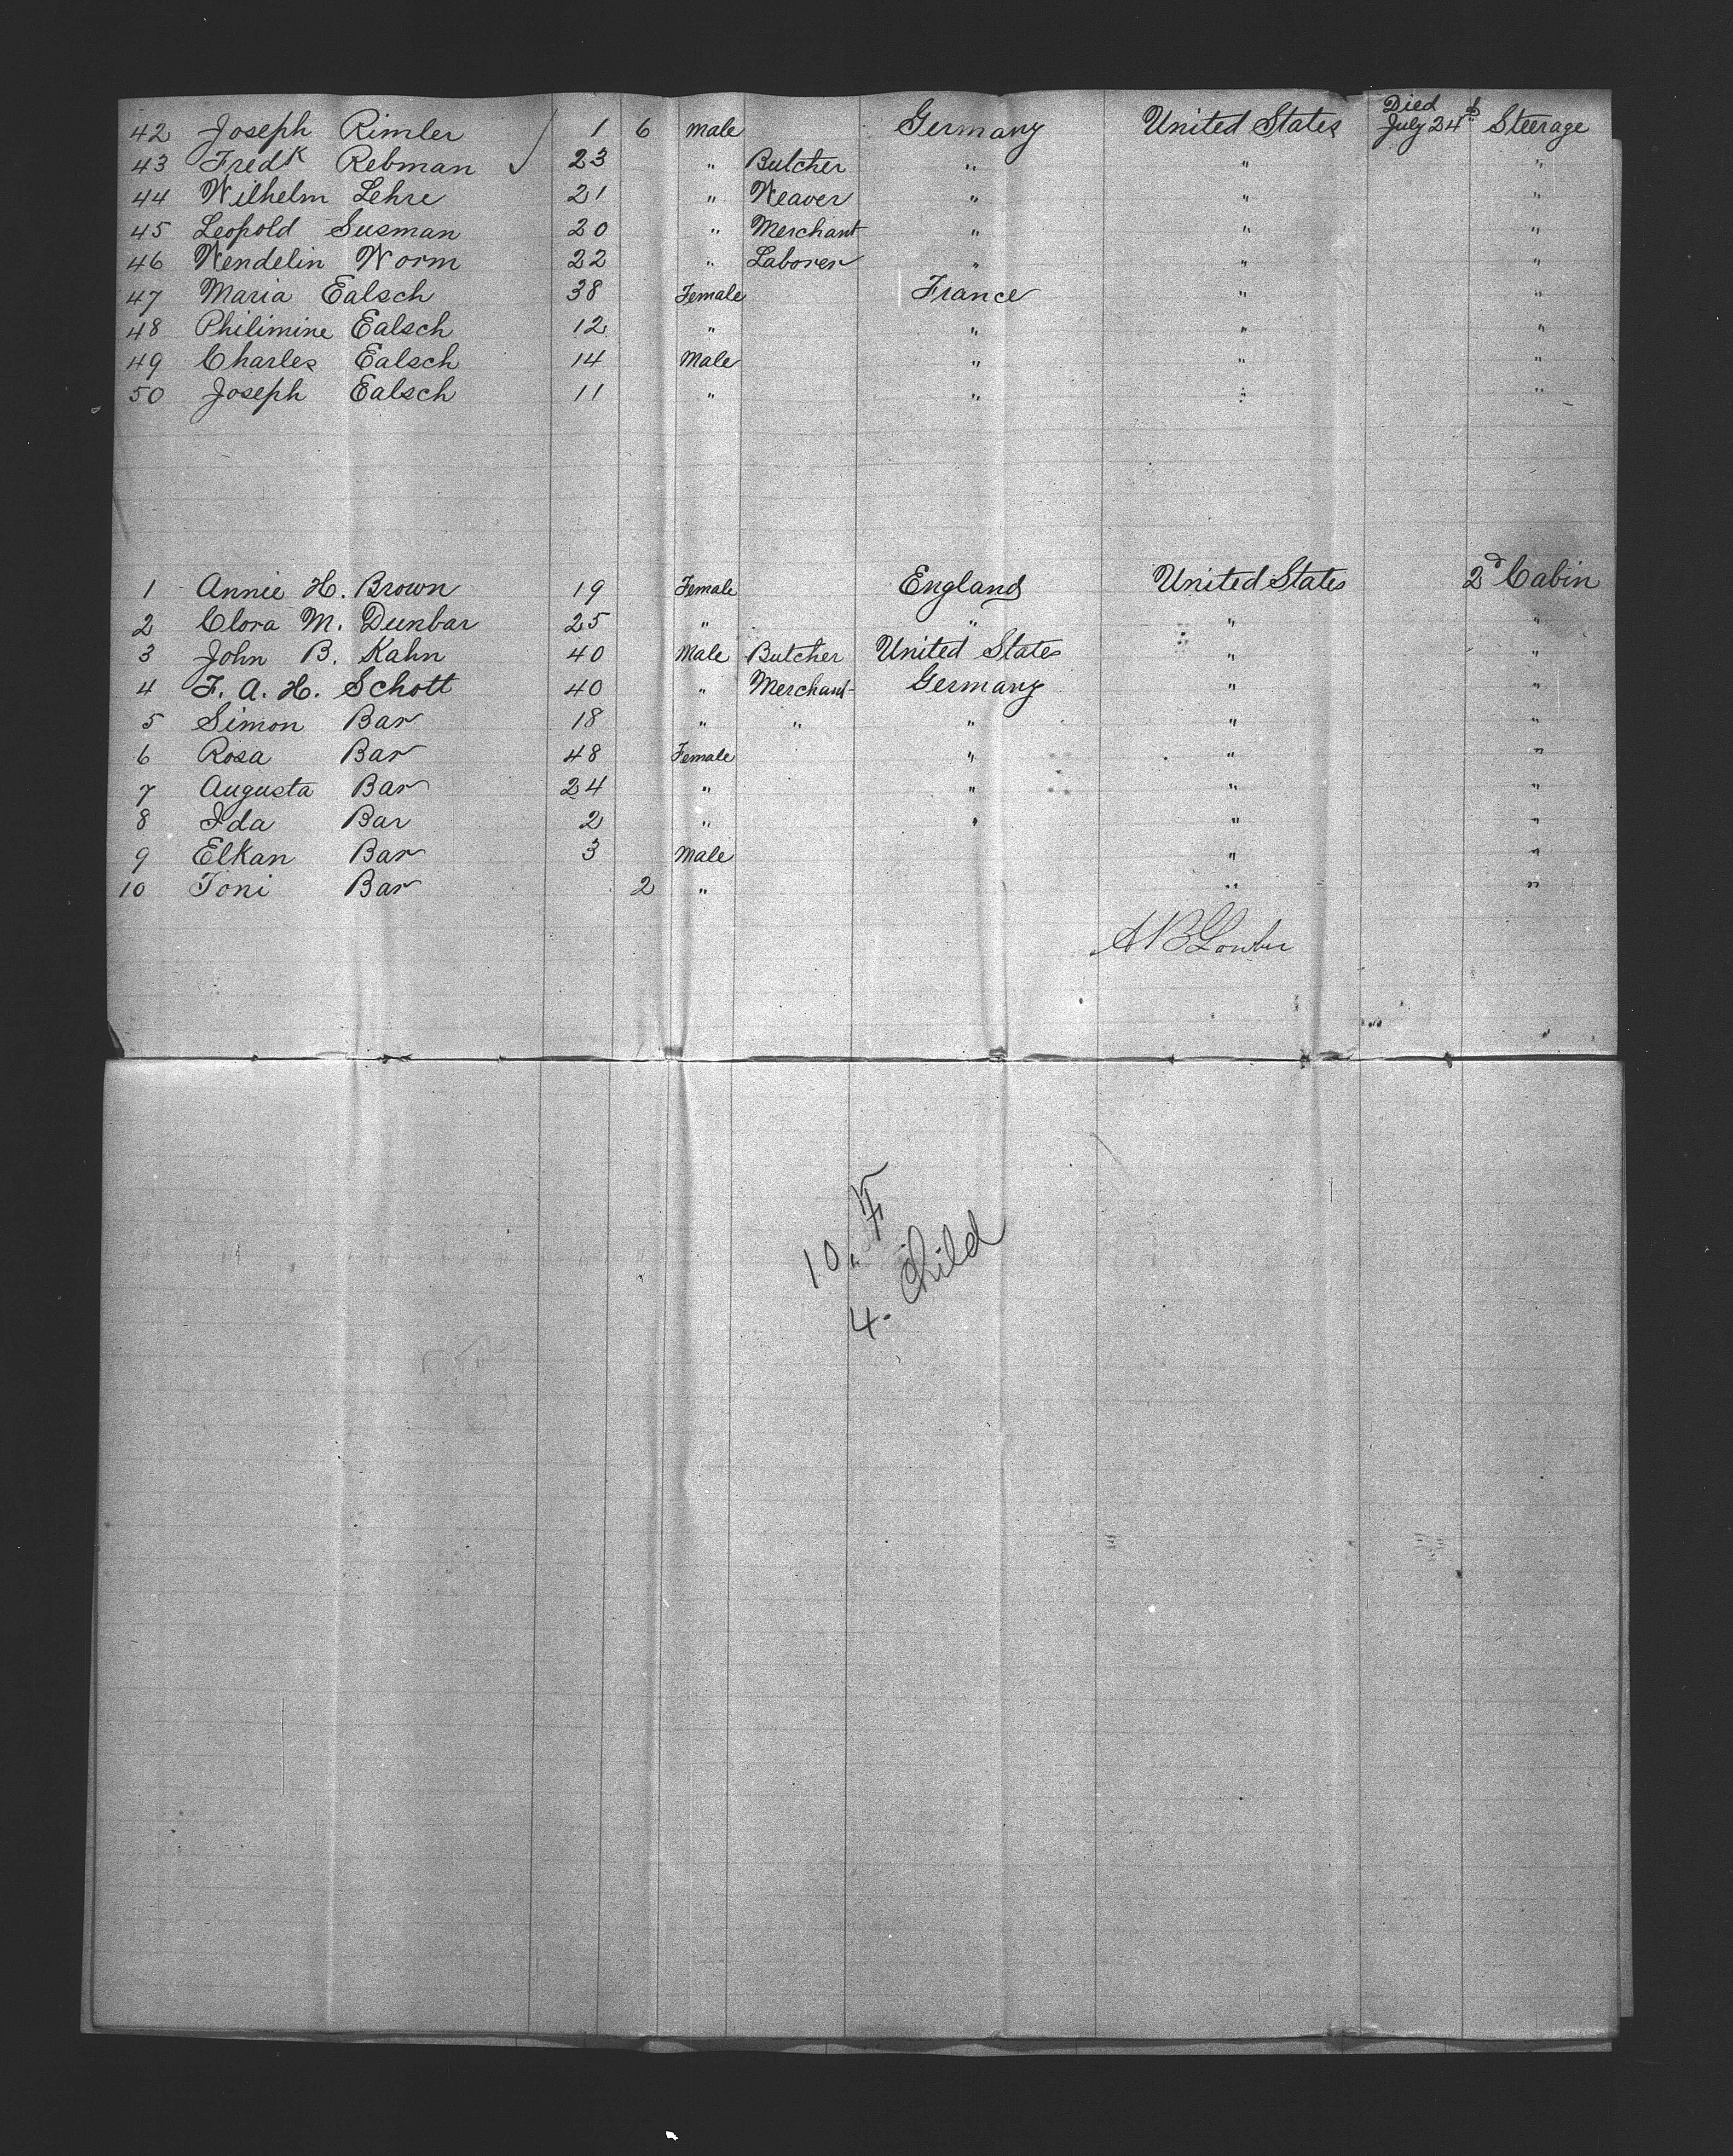 42 Joseph Rimler 1 6 Male Germany United States Died July 24th Steerage
43 Fredk Rebman 23 " Butcher " " "
44 Wilhelm Lehre 21 " Weaver " " "
45 Leopold Susman 20 " Merchant " " "
46 Wendelin Worm 22 " Laborer " " "
47 Maria Ealsch 38 Female France " "
48 Philimine Ealsch 12 " " " "
49 Charles Ealsch 14 Male " " "
50 Joseph Ealsch 11 " " " "
1 Annie H. Brown 19 Female England United States 2d Cabin
2 Clora M. Dunbar 25 " " " "
3 John B. Kahn 40 Male Butcher United States " "
4 F. A. H. Schott 40 " Merchant Germany " "
5 Simon Bar 18 " " " " "
6 Rosa Bar 48 Female " " "
7 Augusta Bar 24 " " " "
8 Ida Bar 2 " " " "
9 Elkan Bar 3 Male " "
10 Toni Bar 2 " " "
10. F
4. Child